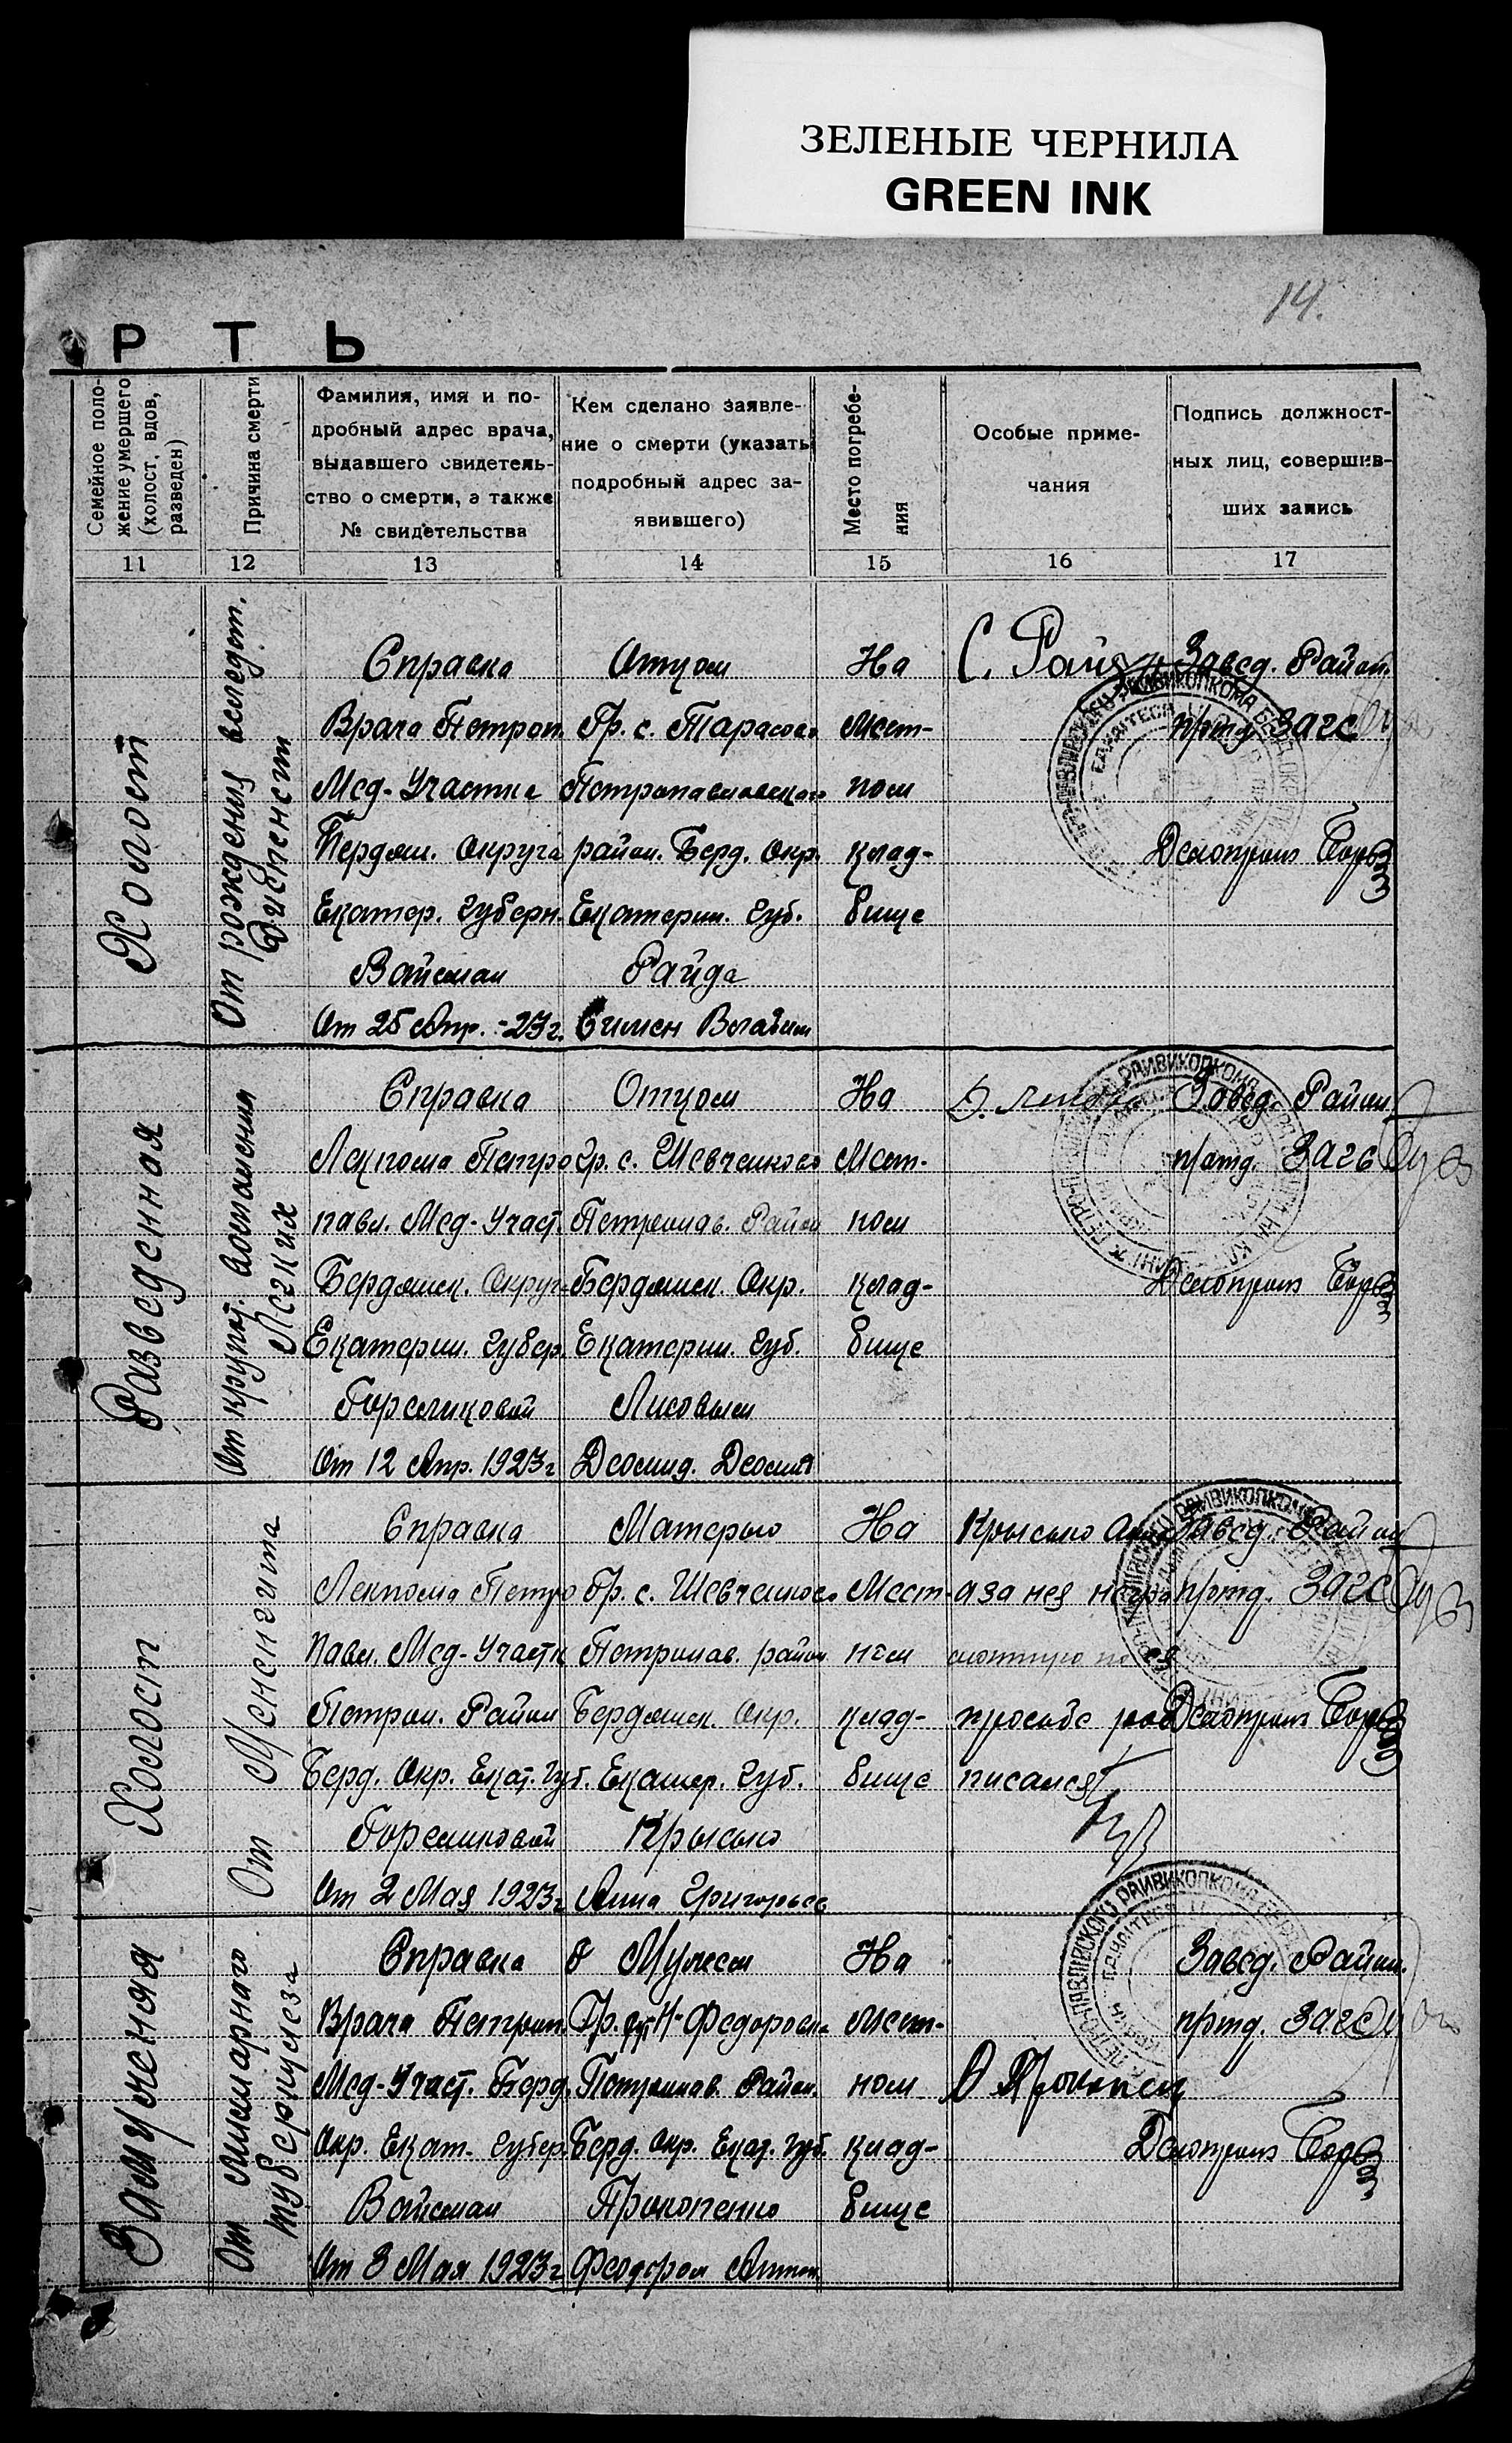 ЗЕЛЕНЫЕ ЧЕРНИЛА
GREEN INK
14.
Р Т Ь
Семейное поло-
жение умершего
(холост, вдов,
разведен)
Причина смерти
Фамилия, имя и по-
дробный адрес врача,
выдавшего свидетель-
ство о смерти, а также
№ свидетельства
Кем сделано заявле-
ние о смерти (указать
подробный адрес за-
явившего)
Место погребе-
ния
Особые приме-
чания
Подпись должност-
ных лиц, совершив-
ших запись
11 12 13 14 15 16 17
Холост
От рождения вследст.
Справка
Врача Петроп.
Мед-Участка
Бердян. Округа
Екатер. Губерн.
Вайсман
От 25 Апр. -23г.
Отцом
Гр. с. Тарасов
Петропавловского
район. Берд. Окр.
Екатерин. Губ.
Райда
Симен
На
мест-
ном
клад-
бище
С. Райда
Завед. Район.
п/отд. ЗАГС
Делопроиз
Разведенная
От круп. воспаления
Легких
Справка
Лекпома Петро
павл. Мед-Участ.
Бердянск. Округа
Екатерин. Губер.
От 12 Апр. 1923г
Отцом
Гр. с. Шевченково
Петропав. Район
Бердянск. Окр.
Екатерин. Губ.
Лисовым
На
Мест-
ном
клад-
бище
Завед. Район
п/отд. ЗАГС
Делопроиз
Холост
От Менингита
Справка
Лекпома Петро
Павл. Мед-Участк
Петроп. Район
Берд. Окр. Екат. Губ.
От 2 Мая 1923г
Матерью
Гр. с. Шевченково
Петропав. район
Бердянск. Окр.
Екатер. Губ.
Крысько
Анна Григорьев
На
Мест-
ном
клад-
бище
Крысько
а за нея негра
мотную по ея
просьбе рос
писался
Завед. Район
п/отд. ЗАГС
Делопроиз
Замужняя
От милиарного
туберкулеза
Справка
Врача Петроп.
Мед-Участ. Берд.
Окр. Екат. Губер.
Вайсман
От 3 Мая 1923г
Мужем
Гр. Н-Федоровка
Петропав. Район.
Берд. Окр. Екат. Губ.
Прокопенко
Феодором Антон.
На
мест-
ном
клад-
бище
Завед. Район.
п/отд. ЗАГС
Делопроиз